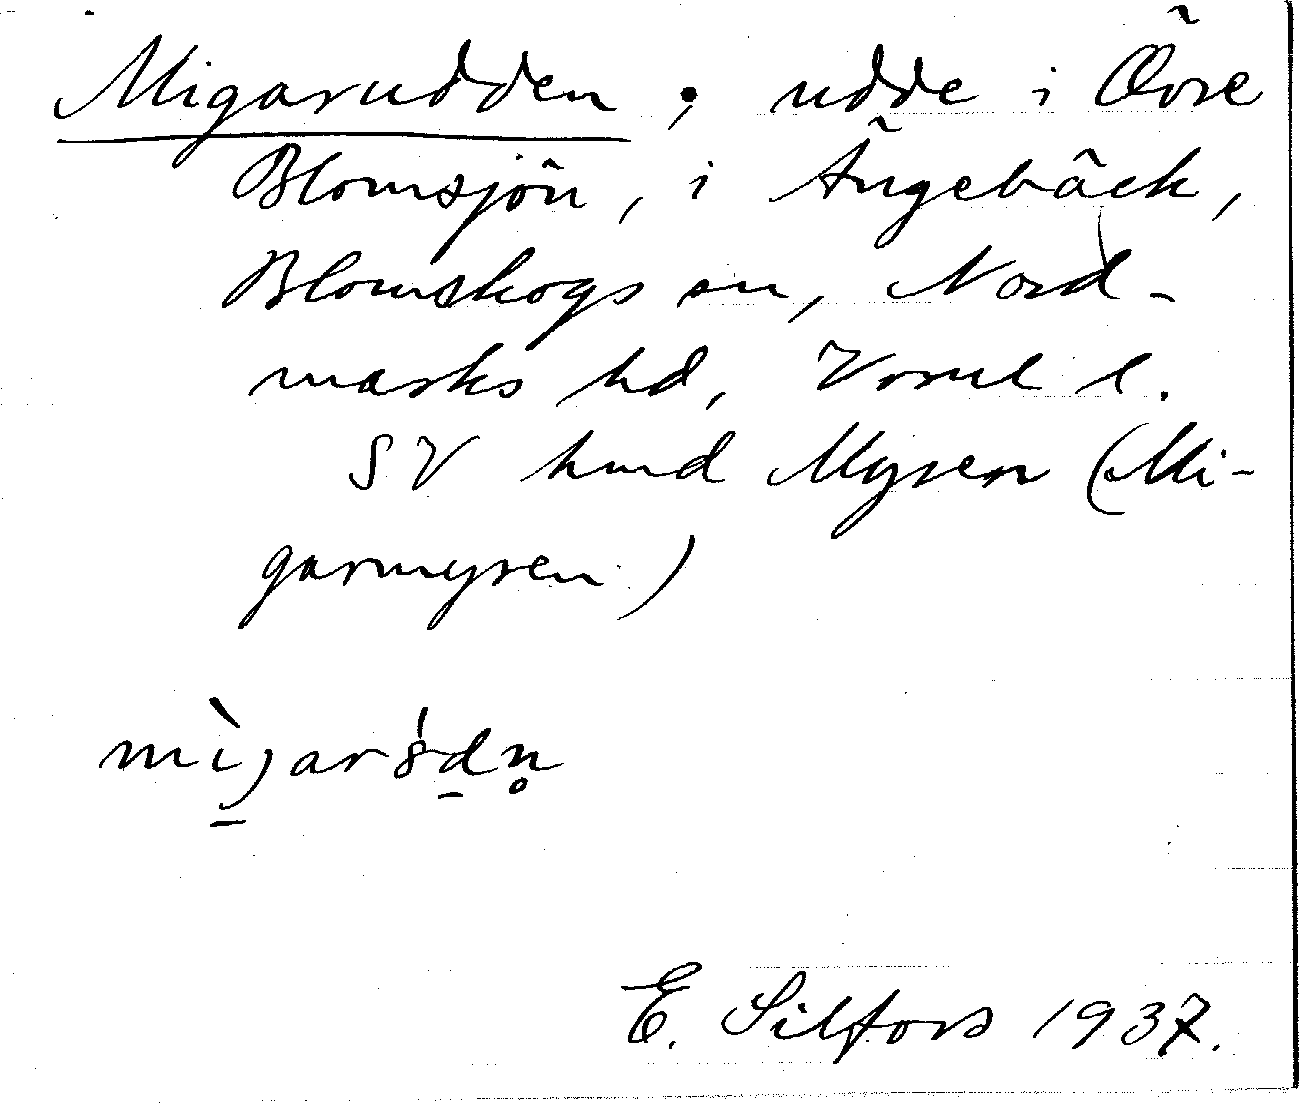 Migarudden; udde i Övre
Blomsjön, i Ängebäck,
Blomskogs sn, Nord-
marks hd, Värml l.
SV hmd Myren (Mi-
garmyren)
E. Silfors 1937.